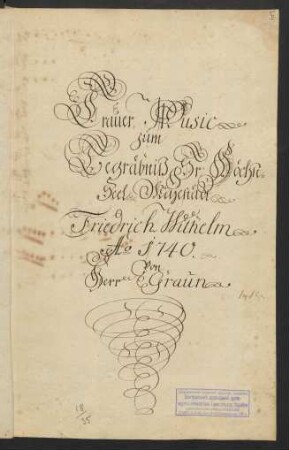 Trauer Music
zum
Begräbniß Sr. Höchst
Seel. Majestät
Friedrich Wilhelm
Ao 1740.
von
Herr Graun